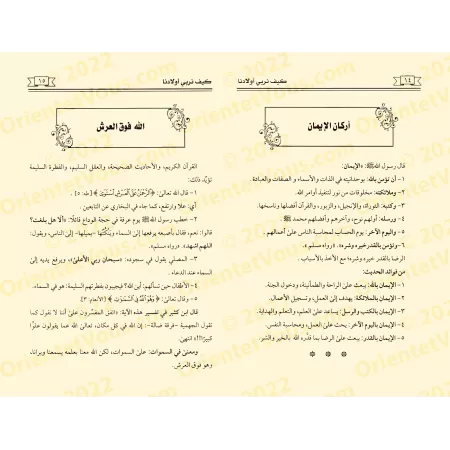 ١٤
كيف نربي أولادنا
أركان الإيمان
قال رسول الله ﷺ: «الإيمان:
١- أن تؤمن بالله: بوحدانيته في الذات والأسماء و الصفات والعبادة.
٢- وملائكته: مخلوقات من نور لتنفيذ أوامر الله.
٣- وكتبه: التوراة، والإنجيل، والزبور، والقرآن أفضلها وناسخها.
٤- ورسله: أولهم نوح، وآخرهم وأفضلهم محمد ﷺ.
٥- واليوم الآخر: يوم الحساب لمحاسبة الناس على أعمالهم.
٦- وتؤمن بالقدر خيره وشره» «رواه مسلم».
الرضا بالقدر خيره وشره مع الأخذ بالأسباب.
من فوائد الحديث:
١- الإيمان بالله: يبعث على الراحة والطمأنينة، ودخول الجنة.
٢- الإيمان بالملائكة: يهدف إلى العمل، وتسجيل الأعمال.
٣- الإيمان بالكتب والرسل: يساعد على العلم، والتعلم والهداية.
٤- الإيمان باليوم الآخر: يحث على العمل، ومحاسبة النفس.
٥- الإيمان بالقدر: يبعث على الرضا بما قدّره الله بالخير والشر.
١٥
كيف نربي أولادنا
الله فوق العرش
القرآن الكريم، والأحاديث الصحيحة، والعقل السليم، والفطرة السليمة
تؤيّد ذلك:
١- قال الله تعالى: ﴿الرَّحْمَٰنُ عَلَى الْعَرْشِ اسْتَوَىٰ﴾ [طه: ٥].
أي: علا وارتفع، كما جاء في البخاري عن التابعين.
٢- خطب رسول الله ﷺ يوم عرفة في حجة الوداع قائلًا: «ألا هل بلغت؟
قالوا: نعم، فقال بأصبعه يرفعها إلى السماء وينكُتُها -يميلها- إلى الناس، ويقول:
اللهم اشهد». «رواه مسلم».
٣- المصلي يقول في سجوده: «سبحان ربي الأعلى»، ويرفع يديه إلى
السماء عند الدعاء.
٤- الأطفال حين تسألهم: أين الله؟ فيجيبون بفطرتهم السليمة: هو في السماء.
٥- وقال تعالى: ﴿وَهُوَ اللَّهُ فِي السَّمَاوَاتِ﴾ (الأنعام ٣)
قال ابن كثير في تفسير هذه الآية: اتفق المفسّرون على أننا لا نقول كما
تقول الجهمية -فرقة ضالة-: إن الله في كل مكان، تعالى الله عما يقولون علوًّا
كبيرًا!!» انتهى.
ومعنى في السموات: على السموات، لكن الله معنا بعلمه يسمعنا ويرانا،
وهو فوق العرش.